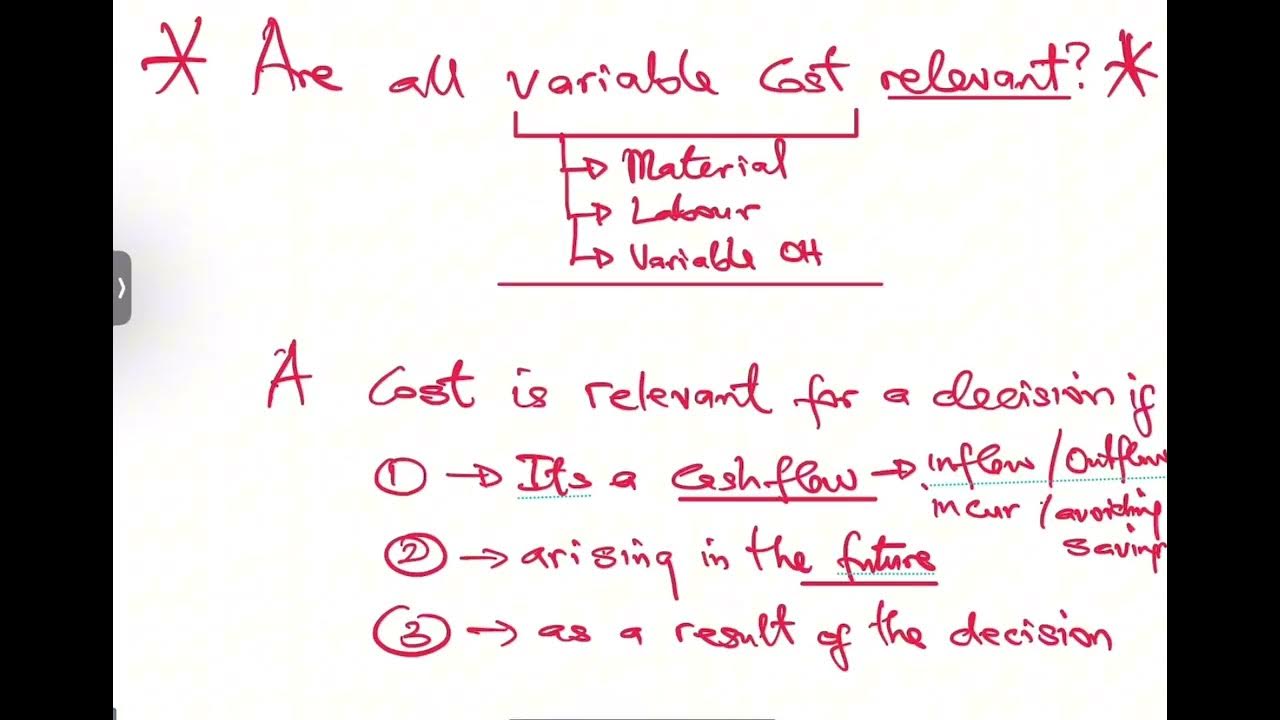 * Are all variable cost relevant? *
→ Material
→ Labour
→ Variable OH
A cost is relevant for a decision if
① → Its a cashflow → inflow / outflow
incur / avoiding
savings
② → arising in the future
③ → as a result of the decision